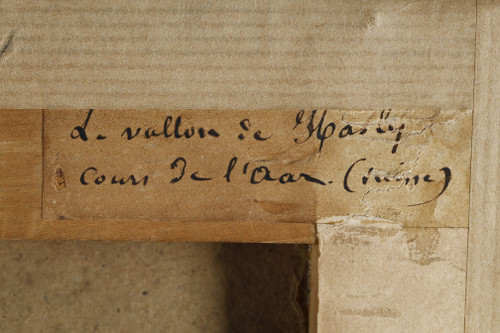 Le vallon de Hasly
cours de l'Aar. (suisse)